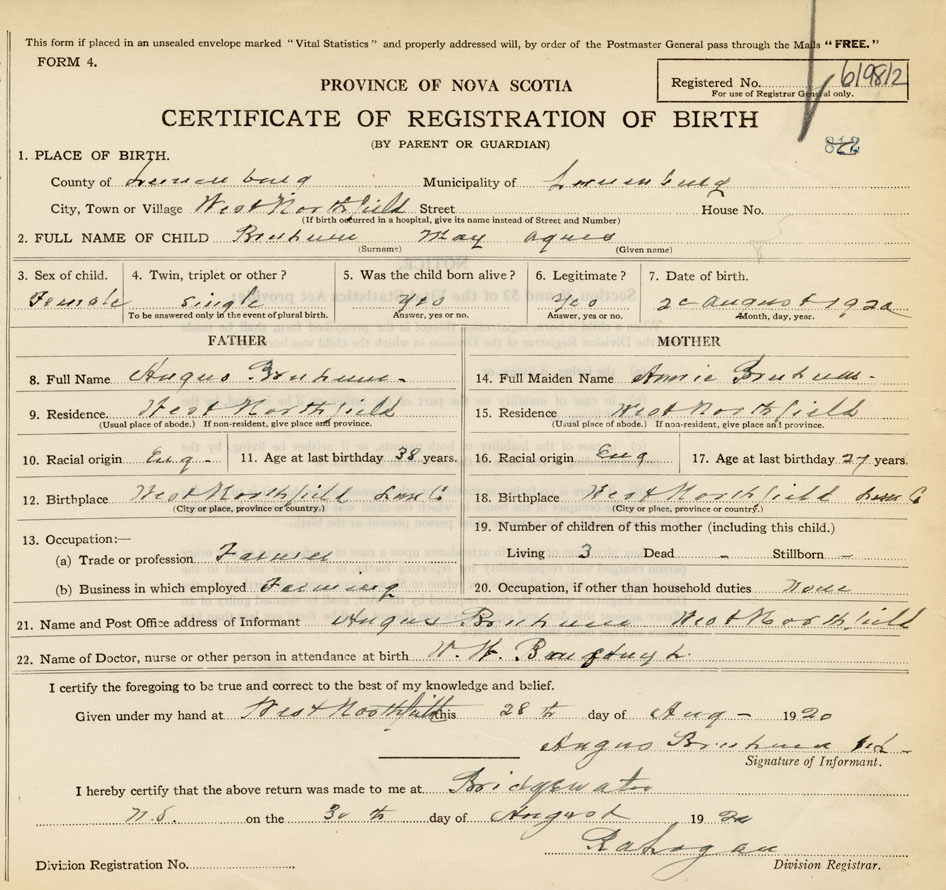 This form if placed in an unsealed envelope marked "Vital Statistics" and properly addressed will, by order of the Postmaster General pass through the Mails "FREE."
FORM 4.
PROVINCE OF NOVA SCOTIA
Registered No. 61982
For use of Registrar General only.
CERTIFICATE OF REGISTRATION OF BIRTH
(BY PARENT OR GUARDIAN)
1. PLACE OF BIRTH.
County of Lunenburg Municipality of Lunenburg
City, Town or Village West Northfield Street House No.
(If birth occurred in a hospital, give its name instead of Street and Number)
2. FULL NAME OF CHILD May Agnes
(Surname) (Given name)
3. Sex of child. 4. Twin, triplet or other? 5. Was the child born alive? 6. Legitimate? 7. Date of birth.
Female Single Yes Yes August 1920
To be answered only in the event of plural birth. Answer, yes or no. Answer, yes or no. Month, day, year.
FATHER MOTHER
8. Full Name Angus 14. Full Maiden Name Annie
9. Residence. West Northfield 15. Residence West Northfield
(Usual place of abode.) If non-resident, give place and province. (Usual place of abode.) If non-resident, give place and province.
10. Racial origin Eng 11. Age at last birthday 38 years. 16. Racial origin Eng 17. Age at last birthday 27 years.
12. Birthplace West Northfield Lun C 18. Birthplace West Northfield Lun C
(City or place, province or country.) (City or place, province or country.)
13. Occupation:— 19. Number of children of this mother (including this child.)
(a) Trade or profession Farmer Living 3 Dead - Stillborn -
(b) Business in which employed Farming 20. Occupation, if other than household duties None
21. Name and Post Office address of Informant Angus West Northfield
22. Name of Doctor, nurse or other person in attendance at birth W. H.
I certify the foregoing to be true and correct to the best of my knowledge and belief.
Given under my hand at West Northfield this 28th day of Aug - 1920
Angus
Signature of Informant.
I hereby certify that the above return was made to me at Bridgewater
N.S. on the 30th day of August 1920
Division Registration No. Division Registrar.